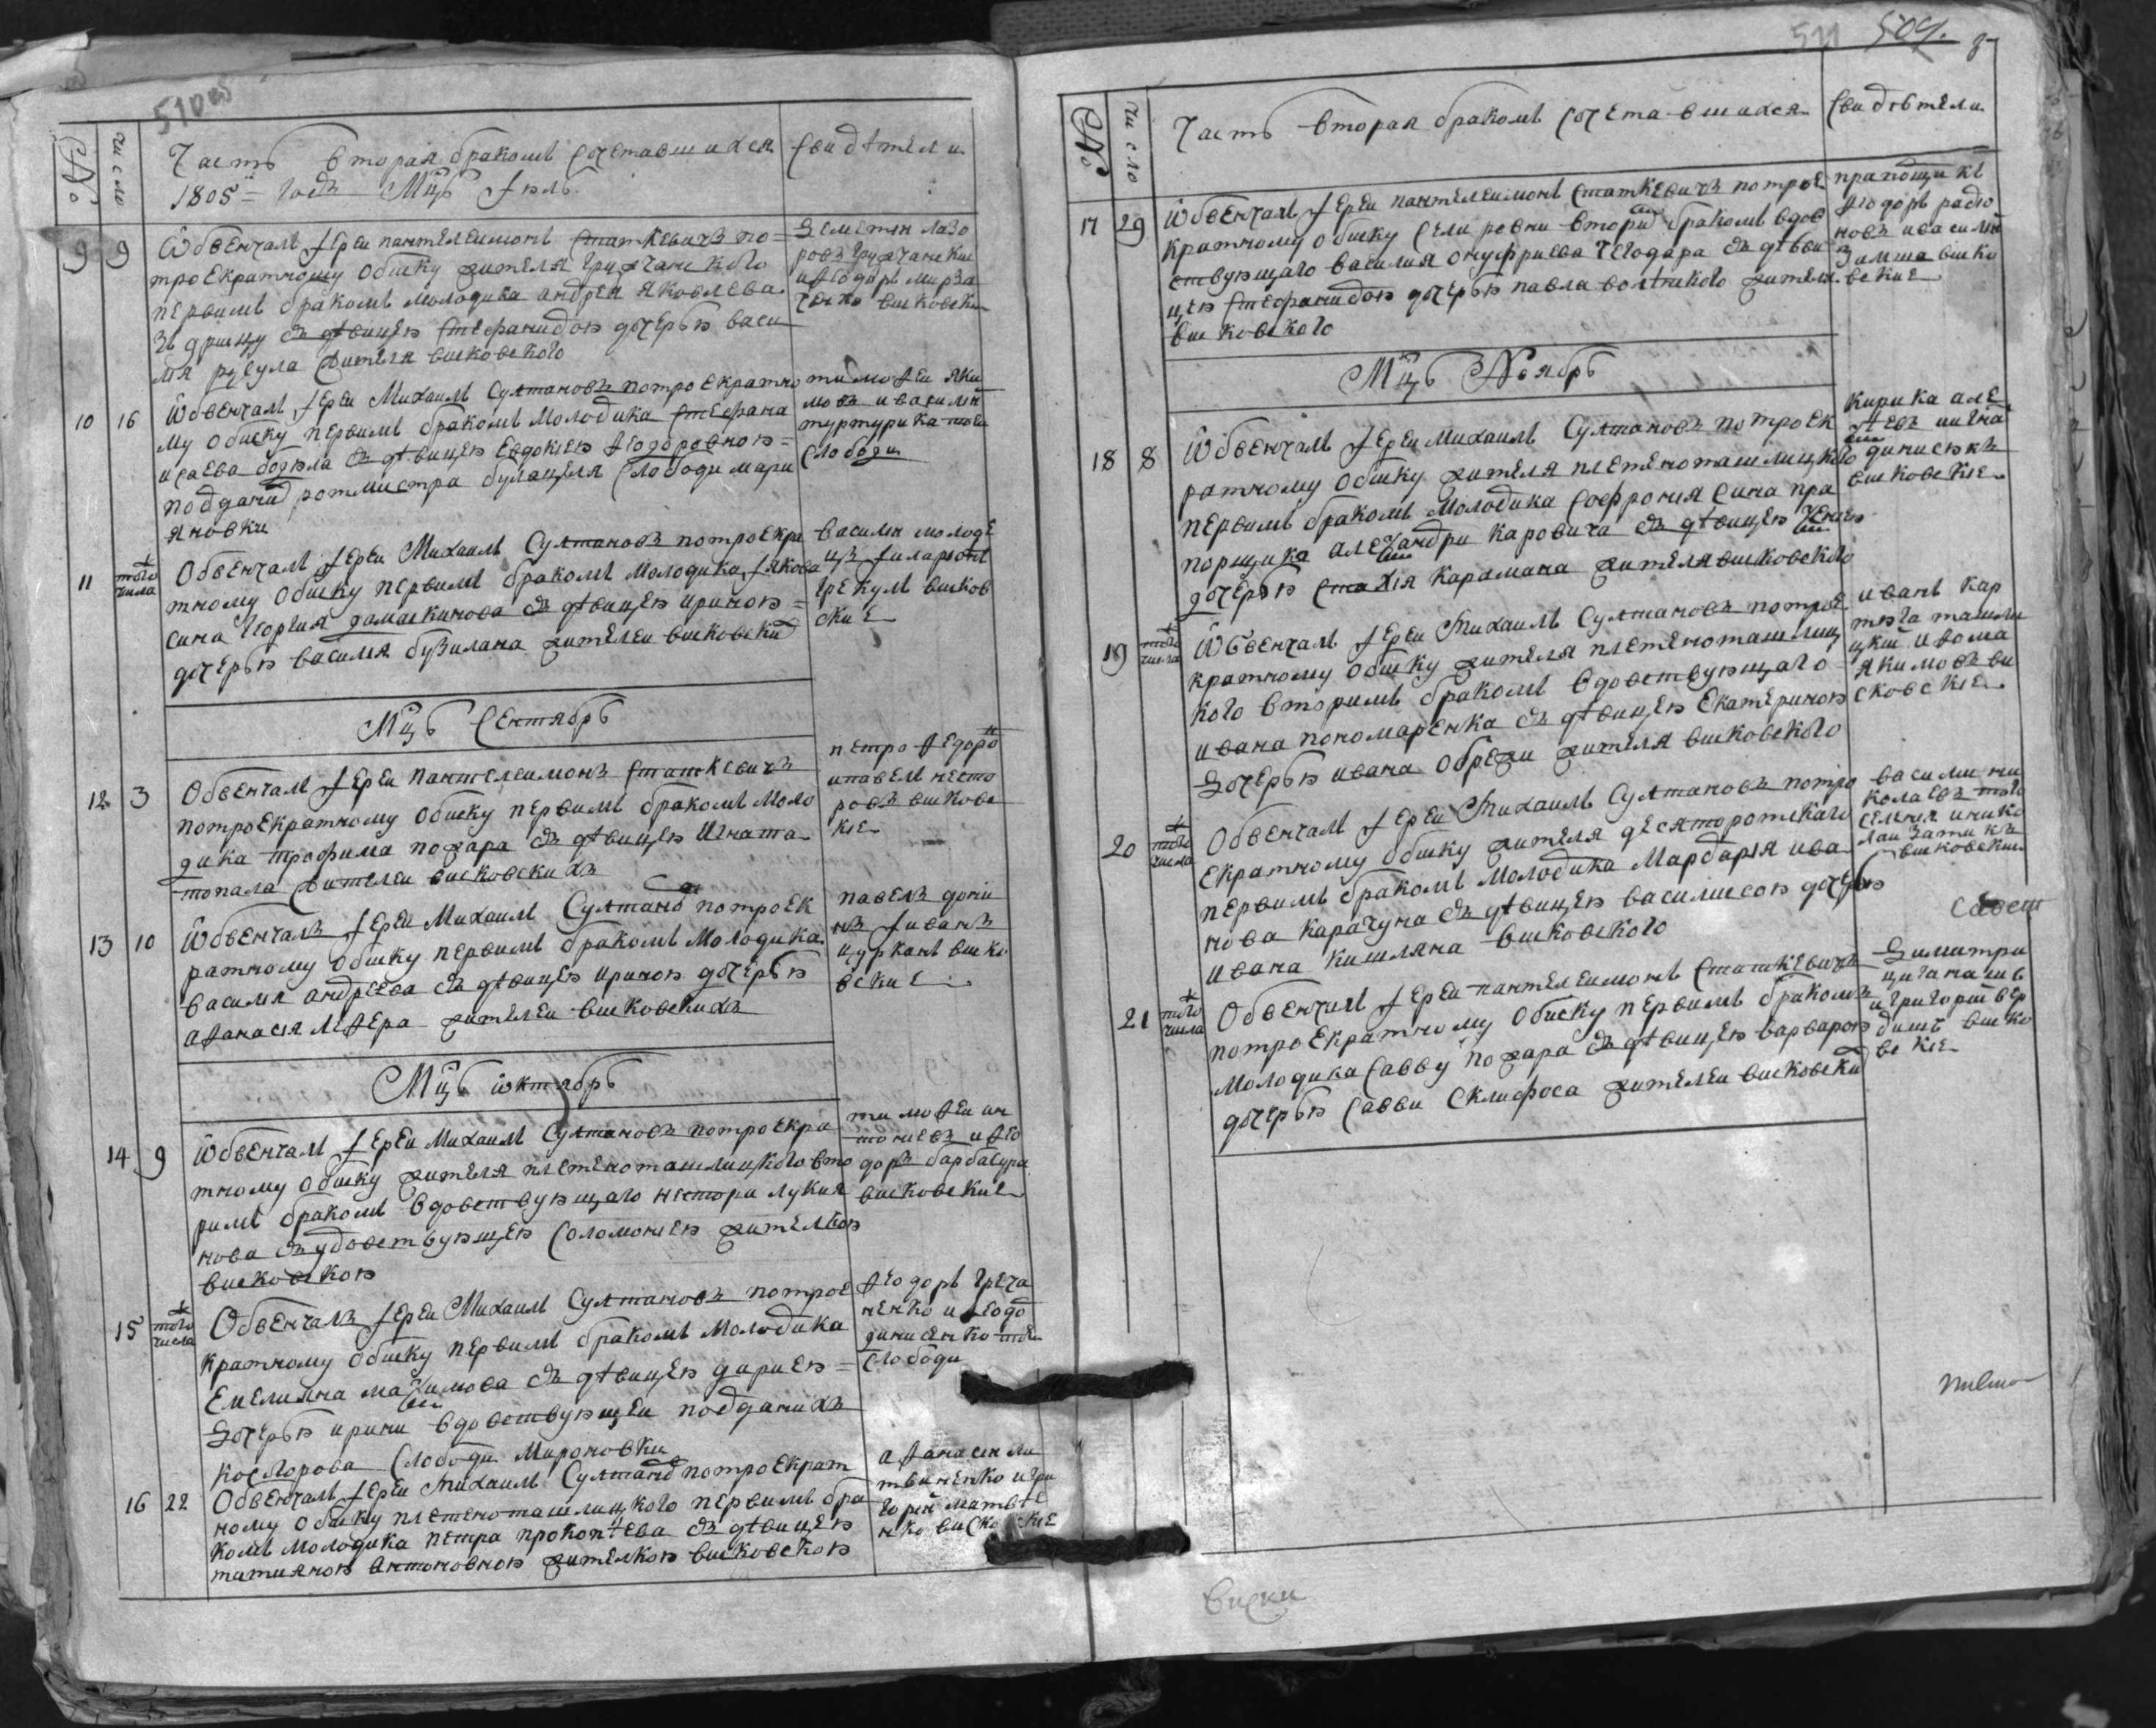 510 об
№ число
Часть вторая бракомъ сочетавшихся Свидѣтели
1805 = годъ Мцъ Iюль
9 9 Ѡбвенчалъ Iерей пантелеимонъ статкевичъ по=
троекратному обиску жителя гружчанского
первимъ бракомъ молодика андрея яковлева
съ дѣвицею стефанидою дочерью васи
лія жителя висковского
деметiи лазо
ровъ гружчански
и ѳеодоръ мирза
ченко висковски
10 16 Ѡбвенчалъ Iерей Михаилъ Султановъ потроекратно
му обиску первимъ бракомъ молодика стефана
исаева съ дѣвицею Евдокiею ѳеодоровною =
поддани ротмистра булацеля слободи мари
яновки
тимоѳеи яки
мовъ и василiи
туртурика тоеи
слободи
11 того числа Обвенчалъ Iерей Михаилъ Султановъ потроекра
тному обиску первимъ бракомъ молодика Iякова
сина георгия дамаскинова съ дѣвицею ириною =
дочерью василия бузилана жителеи висковски
василiи молоде
цъ Iиларiонъ
грекулъ висков
ские
Мцъ Сентябръ
12 3 Обвенчалъ Iерей пантелеимонъ статкевичъ
потроекратному обиску первимъ бракомъ моло
дика трофима пожара съ дѣвицею игната
топала жителеи висковскихъ
петро ѳедоро
и павелъ несто
ровъ висковс
кiе
13 10 Ѡбвенчалъ Iерей Михаилъ Султано потроек
ратному обиску первимъ бракомъ молодика
василя андрѣева съ дѣвицею ириною дочерью
аѳанасiя леѳера жителеи висковскихъ
павелъ дони
нъ Iиванъ
цурканъ виско
вские
Мцъ ѡктябръ
14 9 Ѡбвенчалъ Iерей Михаилъ Султановъ потроекра
тному обиску жителя плетеноташлицкого вто
римъ бракомъ вдовствующаго нестора лукия
нова съ удовствующею соломонiею жителкою
висковскою
тимоѳеи ан
тониевъ и ѳео
доръ барбасура
висковские
15 того числа Обвенчалъ Iерей Михаилъ Султановъ потрое
кратному обиску первимъ бракомъ молодика
Емелияна максимова съ дѣвицею дариею =
дочерью ирини вдовствующеи подданихъ
слободи Мироновки
ѳеодоръ греча
ненко и ѳеодо
динисенко тоеи
слободи
16 22 Обвенчалъ Iерей Михаилъ Султано потроекрат
ному обиску плетеноташлицкого первимъ бра
комъ молодика петра прокопѣева съ дѣвицею
татияною антоновною жителкою висковскою
аѳанасiи ли
твиненко и гри
горiй матвѣе
нко виско ские
511 509. 8
№ число
Часть вторая бракомъ сочетавшихся Свидѣтели
17 29 Ѡбвенчалъ Iерей пантелеимонъ статкевичъ потрое
кратному обиску сели ровни втори бракомъ вдов
ствующаго василия онуфриева чегодара съ дѣви
цею стефанидою дочерью павла жителя
висковского
прапощикъ
ѳеодоръ радио
новъ и василий
замша виско
вские
Мцъ Ноябръ
18 8 Ѡбвенчалъ Iерей Михаилъ Султановъ потроек
ратному обиску жителя плетеноташлицкого
первимъ бракомъ молодика софрония сина пра
порщика александри каровича съ дѣвицею
дочерью карамана жителя висковского
кирика але
и игна
динисюкъ
висковскiе
19 того числа Ѡбвенчалъ Iерей Михаилъ Султановъ потрое
кратному обиску жителя плетеноташлиц
кого вторимъ бракомъ вдовствующаго
ивана пономаренка съ дѣвицею екатериною
дочерью ивана обрежи жителя висковского
иванъ кар
тюга ташли
цкiй и ѳома
якимовъ ви
сковскiе
20 того числа Обвенчалъ Iерей Михаилъ Султановъ потро
екратному обиску жителя десяторотского
первимъ бракомъ молодика мардарiя ива
нова карачуна съ дѣвицею василисою дочерью
ивана кишляна висковского
васили ни
колаевъ того
селения и нико
лаи затикъ
висковскии
21 того числа Обвенчалъ Iерей пантелеимонъ статкевичъ
потроекратному обиску первимъ бракомъ
молодика савву пожара съ дѣвицею варварою
дочерью савви склифоса жителеи висковски
димитри
цигана шъ
и григорий вер
бицъ виско
вскiе
Виски